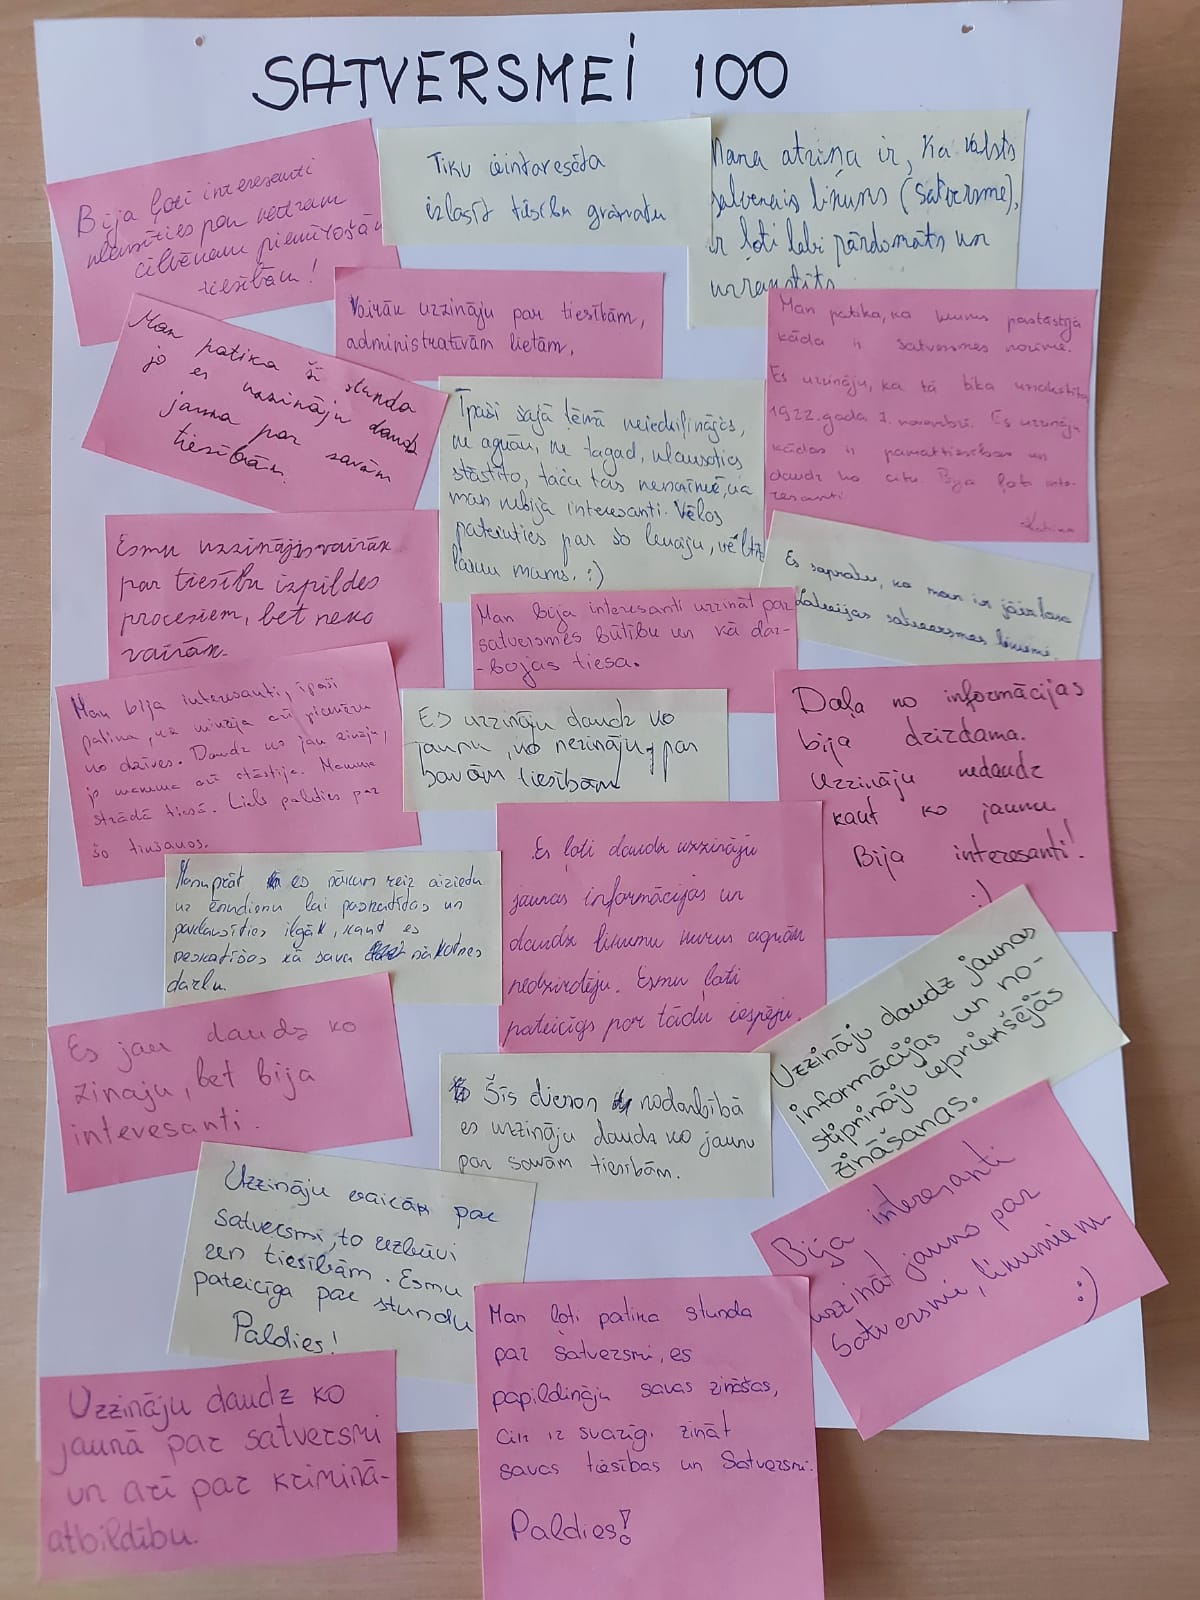 SATVERSMEI 100
Bija ļoti interesanti
klausīties par
cilvēkam piemītošām
tiesībām!
Tiku ieintaresēta
izlasīt tiesību grāmatu
Mana atziņa ir, ka valsts
galvenais likums (satversme),
ir ļoti labi pārdomāts un
uzrakstīts
Vairāk uzzināju par tiesībām,
administratīvām lietām.
Man patika, ka mums pastāstīja
kāda ir satversmes nozīme.
Es uzzināju, ka tā tika uzrakstīta
1922.gada 7. novembrī. Es uzzināju
kādas ir pamattiesības un
daudz ko citu. Bija ļoti inte-
resanti
Man patika šī stunda
jo es uzzināju daudz
jauna par savām
tiesībām.
Īpaši šajā tēmā neiedziļinājos,
ne agrāk, ne tagad, klausoties
stāstīto, taču tas nenozīmē, ka
man nebija interesanti. Vēlos
pateikties par šo lekciju, vēltz
laiku mums. :)
Esmu uzzinājis vairāk
par tiesību izpildes
procesiem, bet neko
vairāk.
Es sapratu, ka man ir jāizlasa
Latvijas satversmes likumi.
Man bija interesanti uzzināt par
satversmes būtību un kā dar-
-bojas tiesa.
Man bija interesanti, īpaši
patika, ka minēja arī piemēru
no dzīves. Daudz ko jau zināju,
jo mamma arī stāstīja. Mamma
strādā tiesā. Liels paldies par
šo tikšanos.
Es uzzināju daudz ko
jaunu, ko nezināju, par
savām tiesībām
Daļa no informācijas
bija dzirdama.
Uzzināju nedaudz
kaut ko jaunu
Bija interesanti!
:)
Manuprāt es nākam reiz aizietu
uz ēnudienu lai paskatītos un
paklausīties ilgāk, kaut es
neskatišos kā sava nākotnes
darbu.
Es ļoti daudz uzzināju
jaunas informācijas un
daudz likumu kurus agrāk
nedzirdēju. Esmu ļoti
pateicīgs par tādu iespēju.
Uzzināju daudz jaunas
informācijas un no-
stiprināju iepriekšējās
zināšanas.
Es jau daudz ko
zinaju, bet bija
interesanti.
Šīs dienas nodarbībā
es uzzināju daudz ko jaunu
par savām tiesībām.
Bija interesanti
uzzināt jauno par
Satversmi, likumiem.
:)
Uzzināju vairāk par
satversmi, to uzbūvi
un tiesībām. Esmu
pateicīga par stundu
Paldies!
Man ļoti patika stunda
par Satversmi, es
papildināju savas zināšas,
cik ir svarīgi zināt
savas tiesības un Satversmi.
Paldies!
Uzzināju daudz ko
jaunā par satversmi
un arī par kriminā-
atbildību.